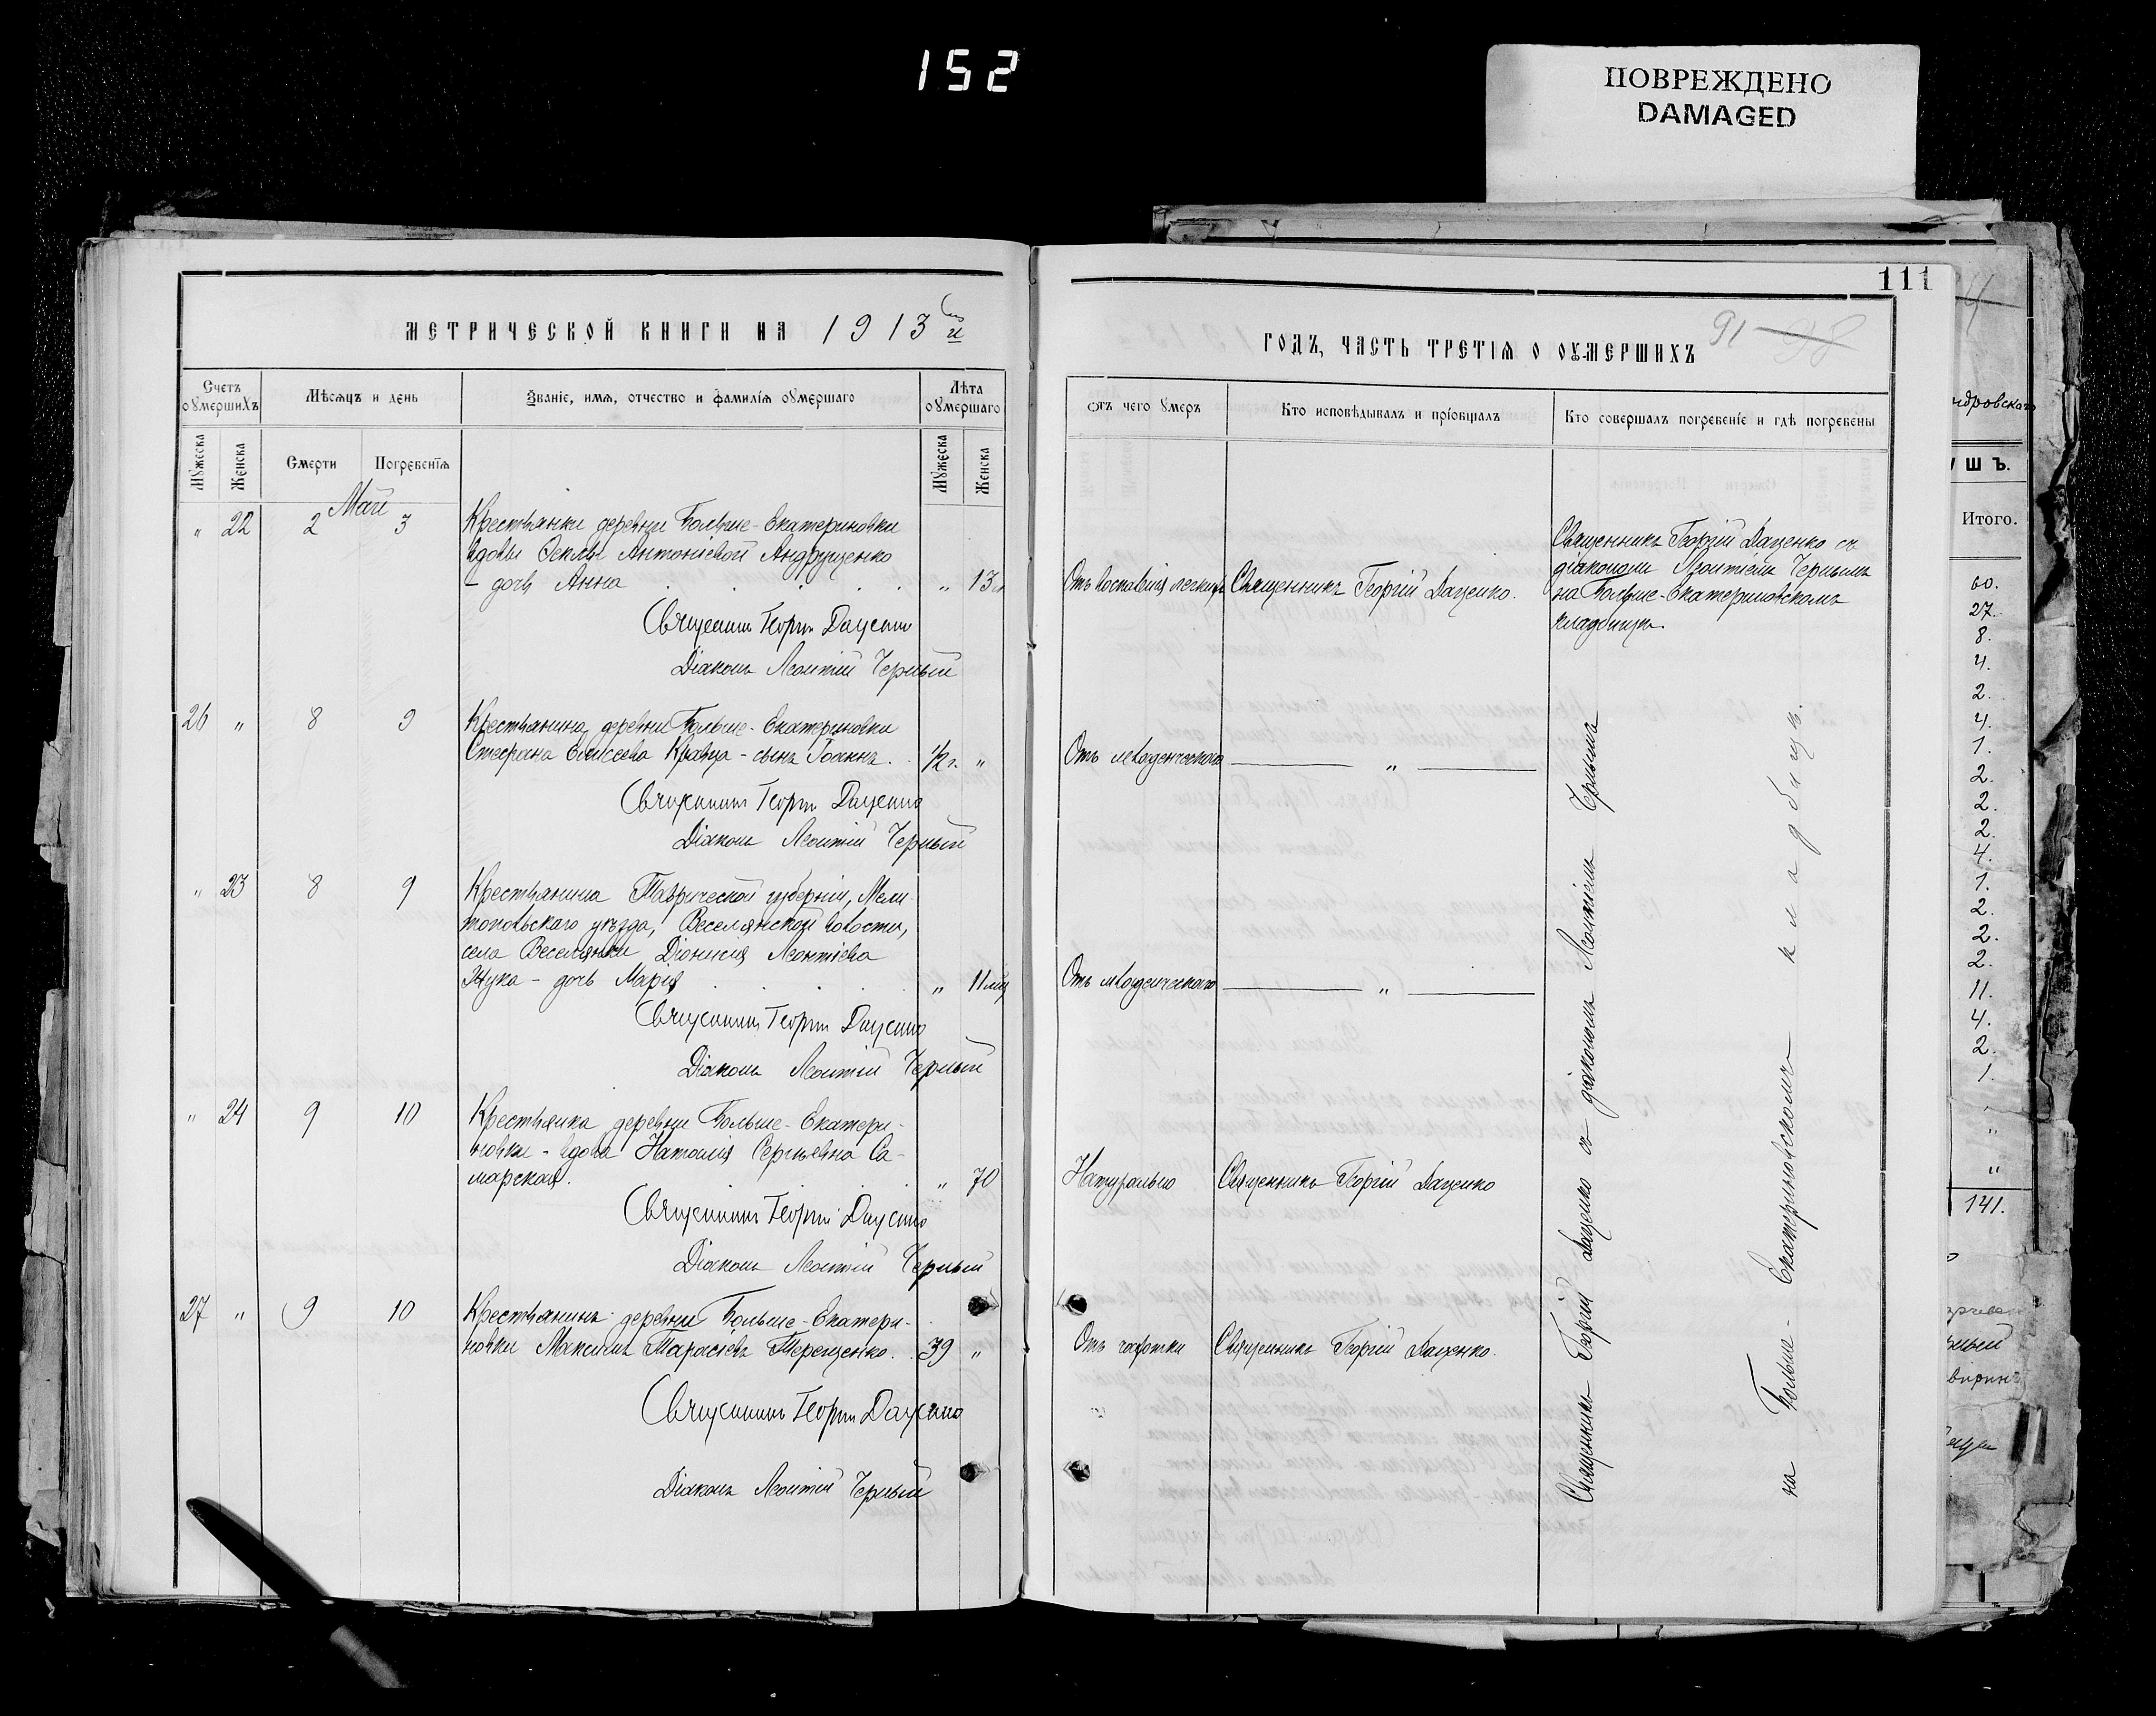 152
ПОВРЕЖДЕНО
DAMAGED
111
МЕТРИЧЕСКОЙ КНИГИ НА 1913й
ГОДЪ, ЧАСТЬ ТРЕТІЯ О ОУМЕРШИХЪ
91 98
Счетъ оумершихъ
Мѣсяцъ и день
Званіе, имя, отчество и фамилія оумершаго
Лѣта оумершаго
Мужеска
Женска
Смерти
Погребенія
Мужеска
Женска
Отъ чего умеръ
Кто исповѣдывалъ и пріобщалъ
Кто совершалъ погребеніе и гдѣ погребены
Май
" 22 2 3 Крестьянки деревни Больше-Екатериновки
вдовы Ѳеклы Антоніевой Андрущенко
- дочь Анна " 13
Отъ воспаленія легкихъ Священникъ Георгій Даценко.
Священникъ Георгій Даценко съ
діакономъ Леонтіемъ Чернымъ
на Больше-Екатериновскомъ
кладбищѣ.
Священникъ Георгій Даценко
Діаконъ Леонтій Черный
26 " 8 9 Крестьянина деревни Больше-Екатериновки
Стефана Елисеева Кравца - сынъ Іоаннъ. 1/2 г. "
Отъ младенческаго "
Священникъ Георгій Даценко
Діаконъ Леонтій Черный
" 23 8 9 Крестьянина Таврической губерніи, Мели
топольскаго уѣзда, Веселянской волости,
села Веселянки Діонисія Леонтіева
Жука - дочь Марія " 11 мц
Отъ младенческаго "
Священникъ Георгій Даценко
Діаконъ Леонтій Черный
" 24 9 10 Крестьянка деревни Больше-Екатери-
новки - вдова Наталія Сергіевна Са-
марская. " 70
Натурально Священникъ Георгій Даценко
Священникъ Георгій Даценко
Діаконъ Леонтій Черный
27 " 9 10 Крестьянинъ деревни Больше-Екатери-
новки Максимъ Тарасіевъ Терещенко. 39 "
Отъ чахотки Священникъ Георгій Даценко.
Священникъ Георгій Даценко
Діаконъ Леонтій Черный
Священникъ Георгій Даценко съ діакономъ Леонтіемъ Чернымъ
на Больше-Екатериновскомъ кладбищѣ.
4
ндровскаго
УШЪ.
Итого.
60.
27.
8.
4.
2.
4.
1.
2.
2.
2.
4.
1.
2.
2.
2.
11.
4.
2.
1.
"
"
"
141.